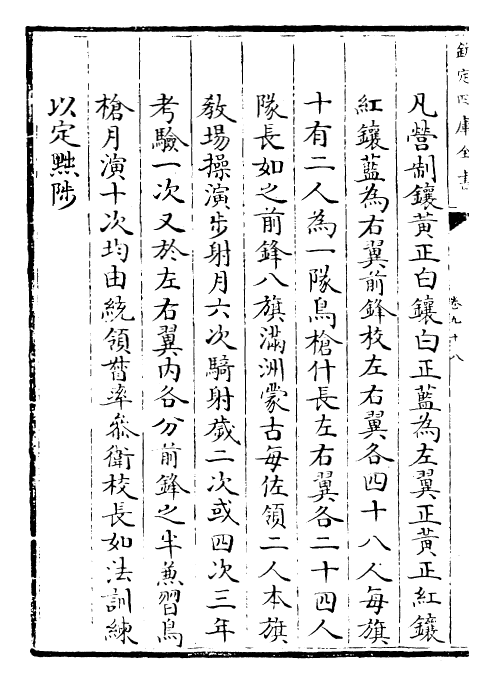 欽定四庫全書
卷九十八
凡營制鑲黃正白鑲白正藍為左翼正黃正紅鑲
紅鑲藍為右翼前鋒校左右翼各四十八人每旗
十有二人為一隊鳥槍什長左右翼各二十四人
隊長如之前鋒八旗滿洲蒙古每佐領二人本旗
教場操演步射月六次騎射歲二次或四次三年
考驗一次又於左右翼內各分前鋒之半兼習鳥
槍月演十次均由統領督率叅衛校長如法訓練
以定黜陟